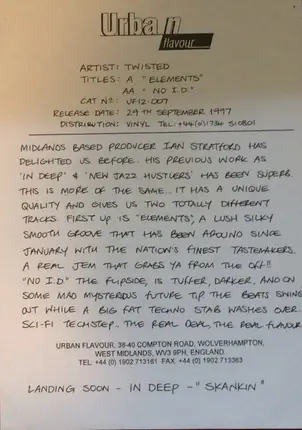 Urban
flavour
ARTIST: TWISTED
TITLES: A "ELEMENTS"
AA "NO I.D."
CAT Nº: UF12-007
RELEASE DATE: 29TH SEPTEMBER 1997
DISTRIBUTION: VINYL TEL: +44(0)1734 510801
MIDLANDS BASED PRODUCER IAN STRATFORD HAS
DELIGHTED US BEFORE. HIS PREVIOUS WORK AS
'IN DEEP' & 'NEW JAZZ HUSTLERS' HAS BEEN SUPERB.
THIS IS MORE OF THE SAME.. IT HAS A UNIQUE
QUALITY AND GIVES US TWO TOTALLY DIFFERENT
TRACKS. FIRST UP IS "ELEMENTS", A LUSH SILKY
SMOOTH GROOVE THAT HAS BEEN AROUND SINCE
JANUARY WITH THE NATION'S FINEST TASTEMAKERS.
A REAL JEM THAT GRABS YA FROM THE OFF!!
"NO I.D" THE FLIPSIDE, IS TUFFER, DARKER, AND ON
SOME MAD MYSTERIOUS FUTURE TIP THE BEATS SWING
OUT WHILE A BIG FAT TECHNO STAB WASHES OVER.
SCI-FI TECHSTEP.. THE REAL DEAL, THE REAL FLAVOUR
URBAN FLAVOUR, 38-40 COMPTON ROAD, WOLVERHAMPTON,
WEST MIDLANDS, WV3 9PH, ENGLAND.
TEL: +44 (0) 1902 713161 FAX. +44 (0) 1902 713363
LANDING SOON - IN DEEP - "SKANKIN"